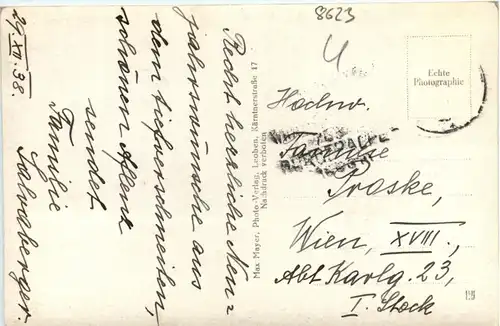 29. XII. 38.
Recht herzliche Neu=
jahrswünsche aus
dem tiefverschneiten,
schönen Aflenz
sendet
Familie
Salvaberger.
Max Mayer, Photo-Verlag, Leoben, Kärntnerstraße 17
Nachdruck verboten
8623
4
Echte
Photographie
Hochw.
Praske,
Wien, XVIII.,
Abt Karlg. 23,
I. Stock